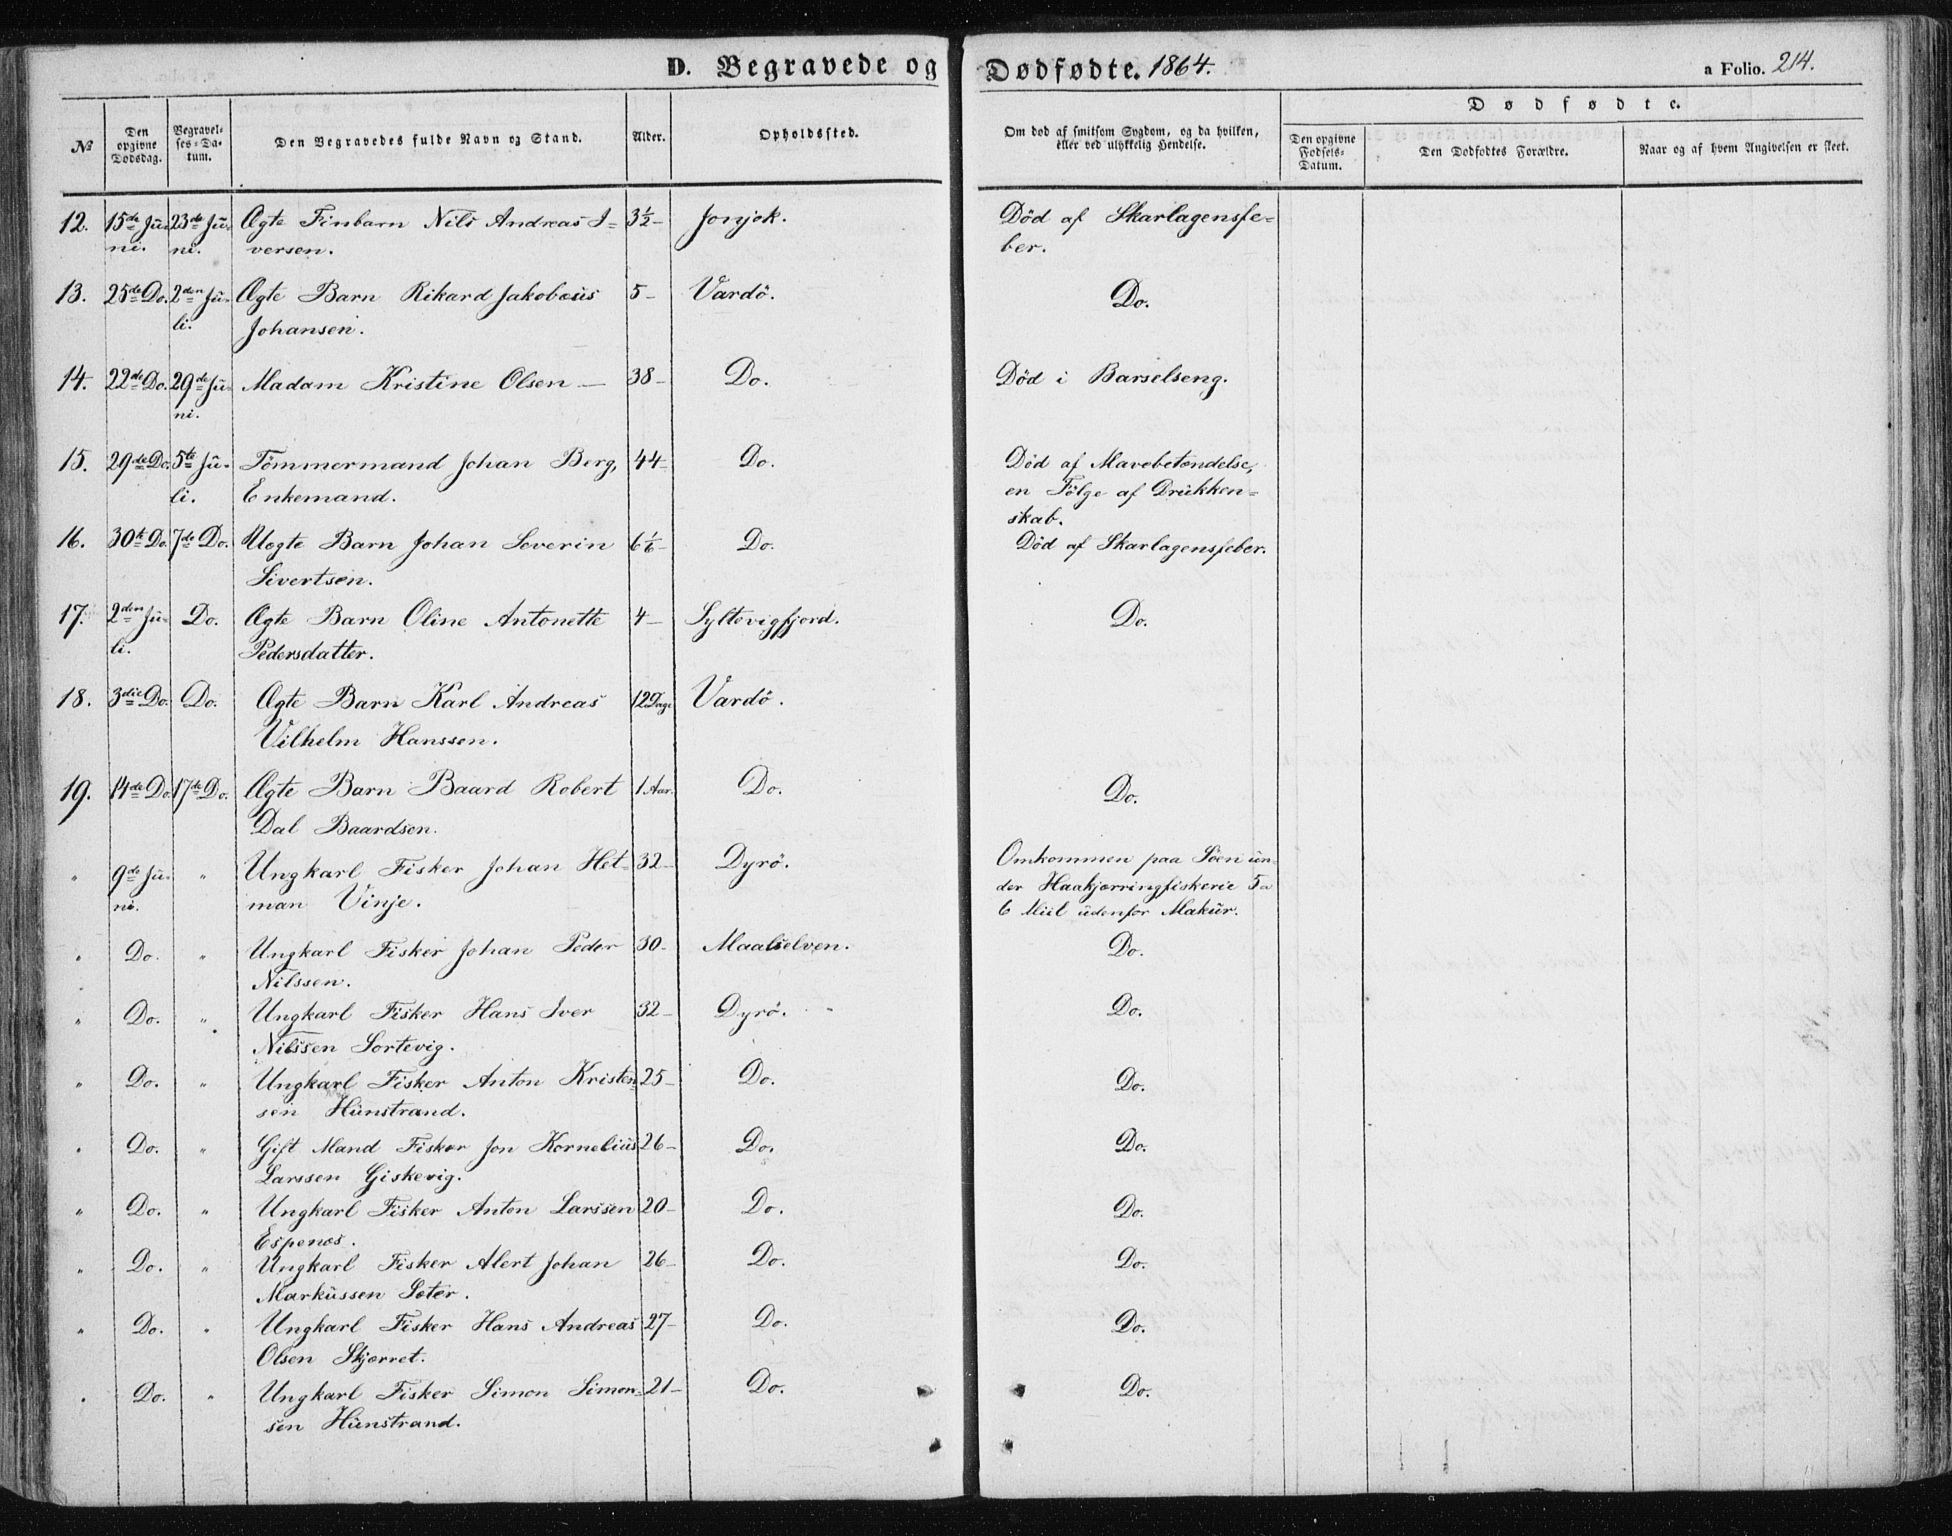 D. Begravede og Dødfødte. 1864. a Folio. 214.
№ Den opgivne Dødsdag. Begravelses-Datum. Den Begravedes fulde Navn og Stand. Alder. Opholdssted. Om død af smitsom Sygdom, og da hvilken, eller ved ulykkelig Hendelse. Dødfødte. Den opgivne Fødsels-Datum. Den Dødfødtes Forældre. Naar og af hvem Angivelsen er skeet.
12. 15de Ju- 23de Ju- Ægte Finbarn Nils Andreas I- 3½- Jonjok. Død af Skarlagensfe-
ni. ni. versen. ber.
13. 25de Do. 2den Ju- Ægte Barn Rikard Jakobæus 5- Vardö. Do.
li. Johansen.
14. 22de Do. 29de Ju- Madam Kristine Olsen — 38- Do. Død i Barselseng.
ni.
15. 29de Do. 5te Ju- Tömmermand Johan Berg, 44- Do. Død af Mavebetændelse,
li. Enkemand. en Fölge af Drukken-
skab.
16. 30te Do. 7de Do. Uægte Barn Johan Severin 6 1/6- Do. Død af Skarlagensfeber.
Sivertsen.
17. 2den Ju- Do. Ægte Barn Oline Antonette 4- Syltevigfjord. Do.
li. Pedersdatter.
18. 3die Do. Do. Ægte Barn Karl Andreas 12 Dage Vardö.
Vilhelm Hanssen.
19. 14de Do. 17de Do. Ægte Barn Baard Robert 1 Aar. Do. Do.
Dal Baardsen.
" 9de Ju- " Ungkarl Fisker Johan Het- 32- Dyrö. Omkommen paa Söen un-
ni. man Vinje. der Haakjærringfiskerie 5 a
6 Miil udenfor Makur.
" Do. " Ungkarl Fisker Johan Peder 30- Maalselven. Do.
Nilssen.
" Do. " Ungkarl Fisker Hans Iver 32- Dyrö. Do.
Nilssen Sortevig.
" Do. " Ungkarl Fisker Anton Kristen- 25- Do. Do.
sen Hunstrand.
" Do. " Gift Mand Fisker Jon Kornelius 26- Do. Do.
Larssen Giskevig.
" Do. " Ungkarl Fisker Anton Larssen 20- Do. Do.
Espenæs.
" Do. " Ungkarl Fisker Alert Johan 26- Do. Do.
Markussen Sæter.
" Do. " Ungkarl Fisker Hans Andreas 27- Do. Do.
Olsen Skjærret.
" Do. " Ungkarl Fisker Simon Simon- 21- Do. Do.
sen Hunstrand.